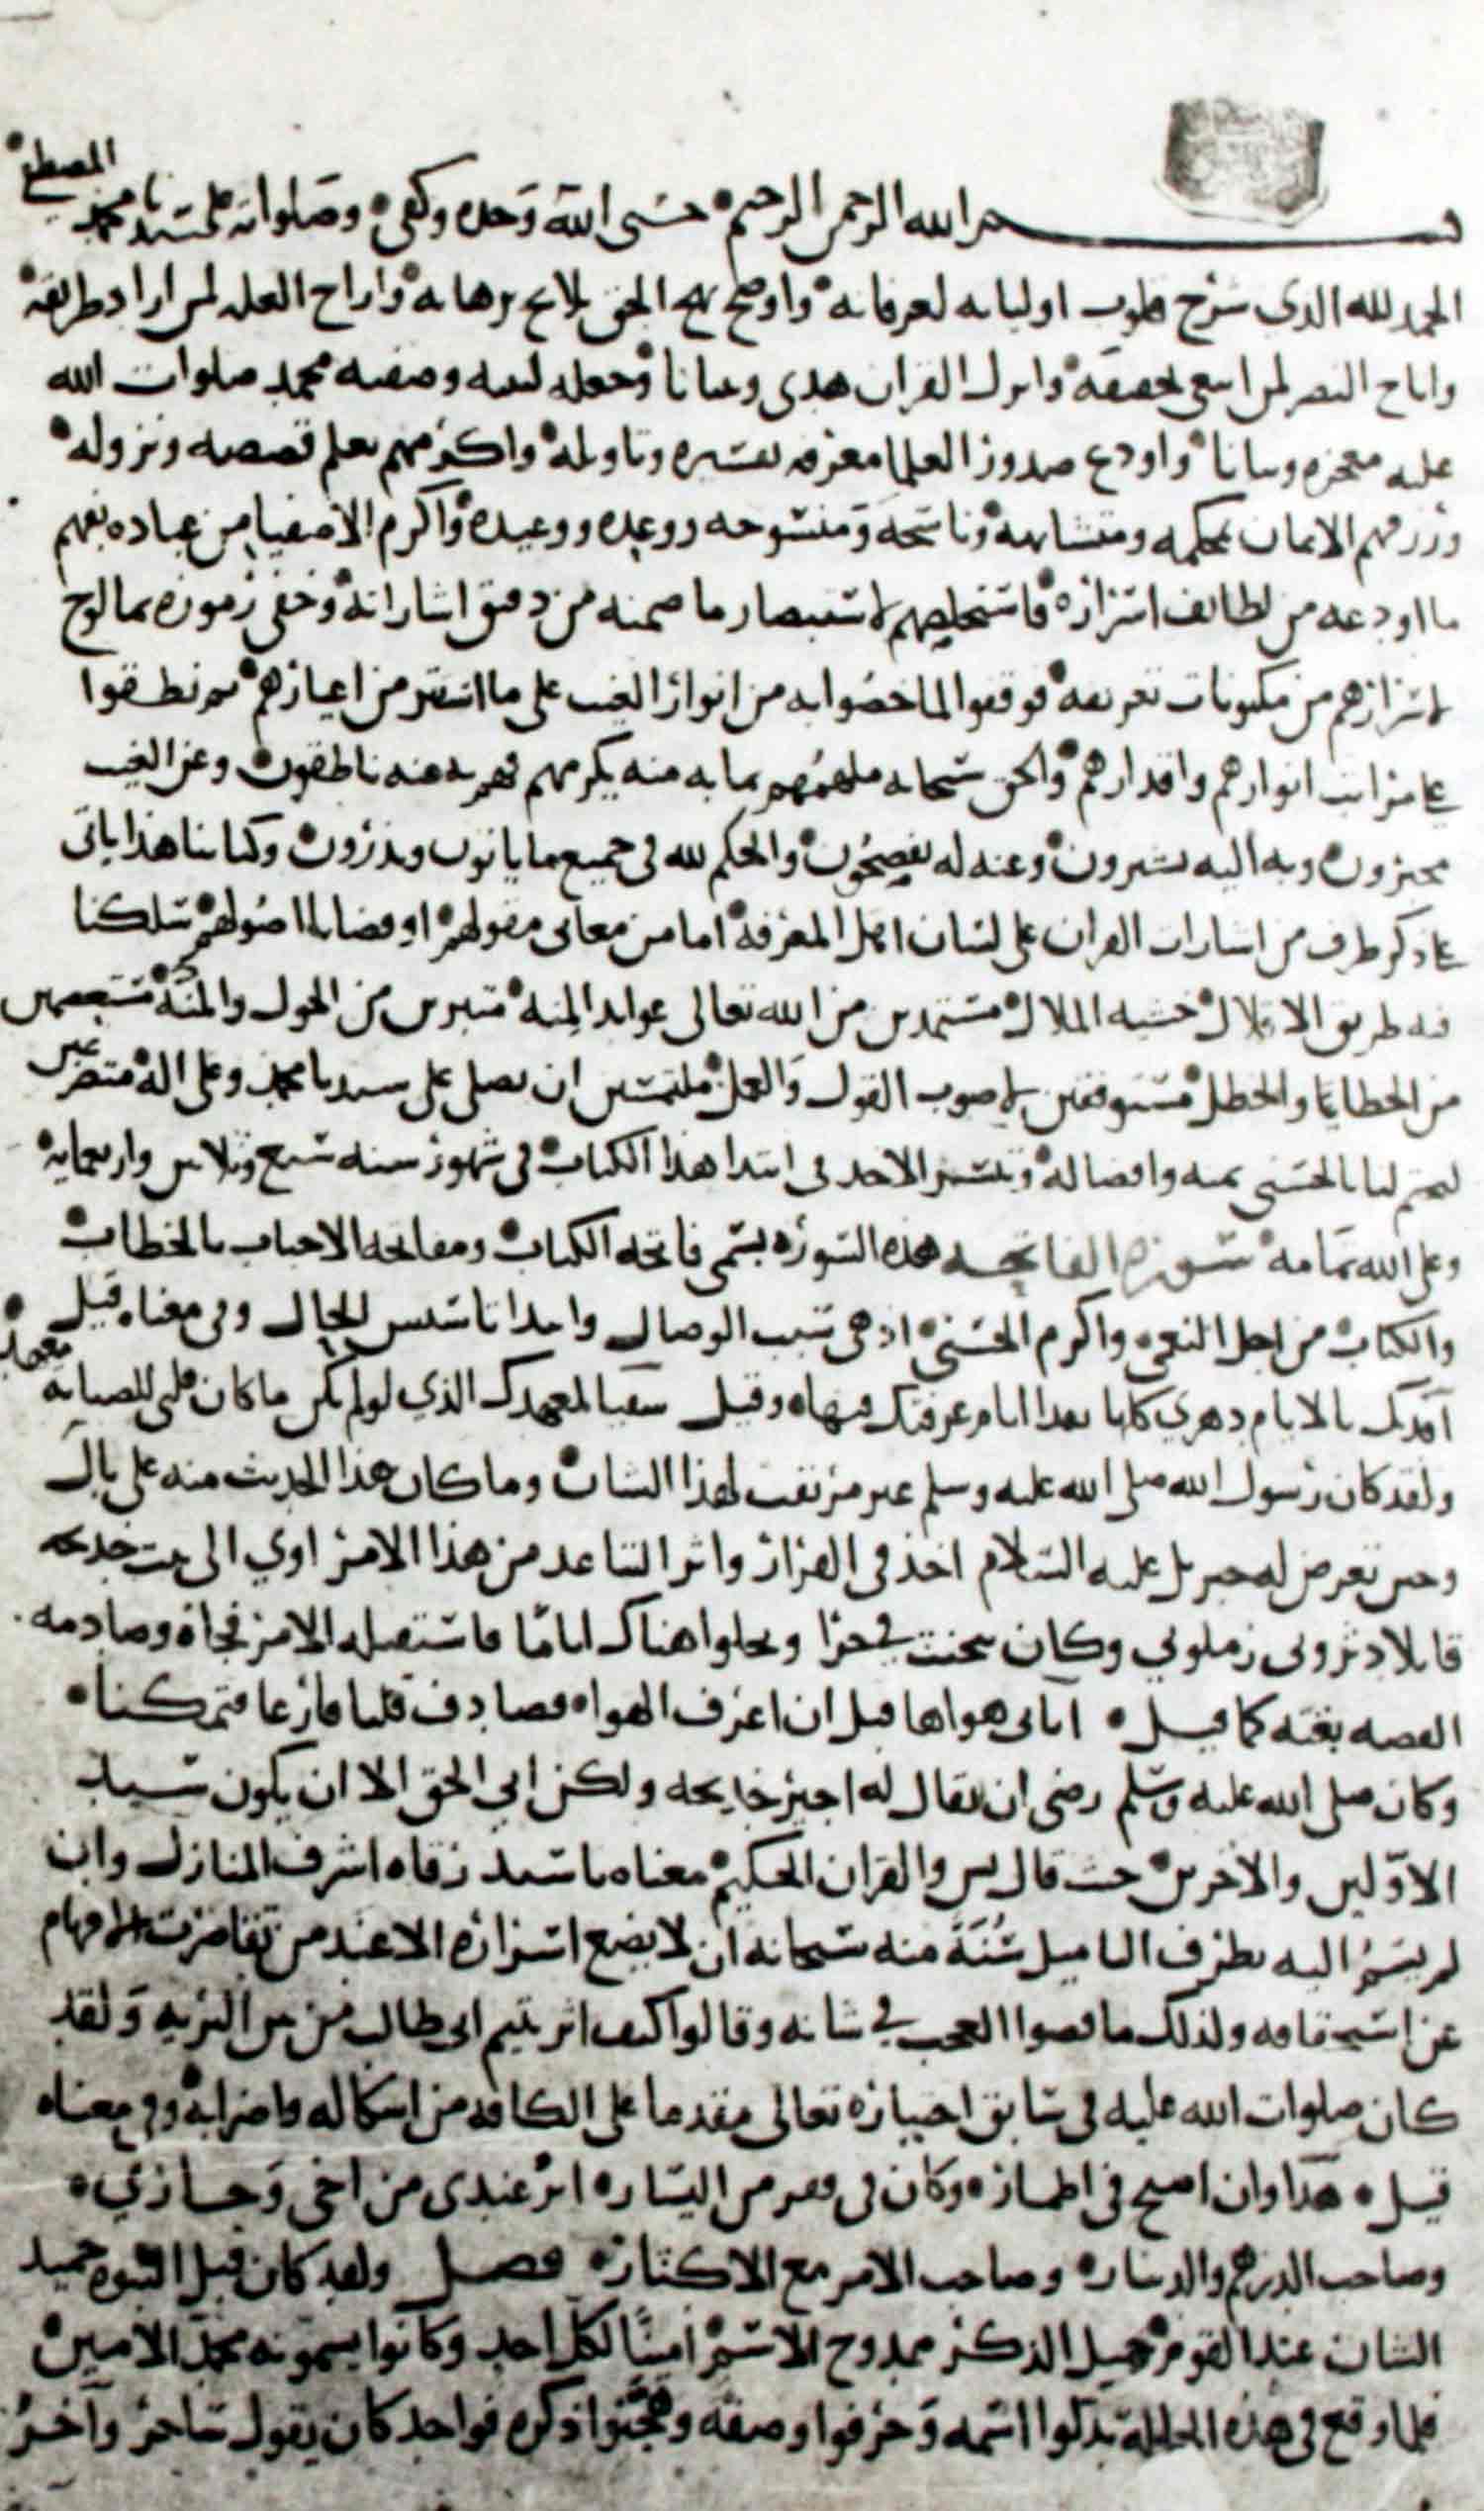 بسم الله الرحمن الرحيم حسبي الله وحده وكفى وصلواته على سيدنا محمد المصطفى
الحمد لله الذي شرح قلوب اوليايه لعرفانه واوضح نهج الحق بلايح برهانه وازاح العله لمن اراد طريقه
واتاح البصر لمن ابتغى تحقيقه وانزل القران هدى وتبيانا وجعله لنبيه وصفيه محمد صلوات الله
عليه معجزه وبيانا واودع صدور العلما معرفه تفسيره وتاويله واكرمهم بعلم قصصه ونزوله
ورزقهم الايمان بمحكمه ومتشابهه وناسخه ومنسوخه ووعده ووعيده واكرم الاصفيا من عباده بفهم
ما اودعه من لطايف اسراره فاستخلصهم لاستبصار ما ضمنه من دقيق اشاراته وخفي رموزه بما لوح
لاسرارهم من مكنونات تعريفه فوقفوا لما خصوا به من انوار الغيب على ما استتر من اغيارهم ثم نطقوا
على مراتب انوارهم واقدارهم والحق سبحانه ملهمهم بما به منه يكرمهم فهم به عنه ناطقون وعن الغيب
مخبرون وبه اليه يشيرون وعنه له يفصحون والحكم لله في جميع ما ياتون ويذرون وكتابنا هذا ياتي
على ذكر طرف من اشارات القران على لسان اهل المعرفه اما من معاني مقولهم او قضايا اصولهم سلكنا
فيه طريق الاقلال خشيه الملال مستمدين من الله تعالى عوايد المنه متبرين من الحول والمنه مستعصمين
من الخطايا والخطل مستوفقين لاصوب القول والعمل ملتمسين ان يصلى على سيدنا محمد وعلى اله متضرعين
ليختم لنا بالحسنى بمنه وافضاله وتيسير الاخذ في ابتدا هذا الكتاب في شهور سنه سبع وثلاثين واربعمايه
وعلى الله تمامه سوره الفاتحه هذه السوره يسمى فاتحه الكتاب ومفاتحه الاحباب بالخطاب
والكتاب من اجل النعمى واكرم الحسنى اذ هي سبب الوصال وابتدا تاسيس الحال وفي معناه قيل
افديك بالايام دهري كلها بعدا ايام عرفتك فيهاه وقيل سقيا لمعهدك الذي لو لم يكن ما كان قلبي للصبابه معهدا
ولقد كان رسول الله صلى الله عليه وسلم غير مرتقب لهذا الشان وما كان هذا الحديث منه على بال
وحين تعرض له جبريل عليه السلام اخذ في الفرار واثر التباعد من هذا الامر اوي الى بيت خديجه
قايلا دثروني زملوني وكان يتحنث في حرا ويخلوا هناك اياما فاستقبله الامر فجاه وصادمه
القصه بغته كما قيل اتاني هواها قبل ان اعرف الهواه فصادف قلبا فارغا فتمكنا
وكان صلى الله عليه وسلم رضى ان يقال له اجير خديجه ولكن ابي الحق الا ان يكون سيد
الاولين والاخرين حيث قال يس والقران الحكيم معناه يا سيد رقاه اشرف المنازل وان
لم يسم اليه بطرف التاميل سنة منه سبحانه ان لا يضع اسراره الا عند من تقاصرت الافهام
عن استحقاقه ولذلك ما قصوا العجب في شانه وقالوا كيف اثر يتيم ابي طالب من بين البريه ولقد
كان صلوات الله عليه في سابق اختياره تعالى مقدما على الكافه من اشكاله واضرابه وفي معناه
قيل هذا وان اصبح في اطماره وكان في فقر من اليساره اثر عندي من اخي وجاري
وصاحب الدرهم والديناره وصاحب الامر مع الاكثاره فصل ولقد كان قبل النبوه حميد
الشان عند القوم جميل الذكر ممدوح الاسم امينا لكل احد وكانوا يسمونه محمد الامين
فلما وقع في هذه الحاله بدلوا اسمه وحرفوا وصفه وهجنوا ذكره فواحد كان يقول ساحر وآخر